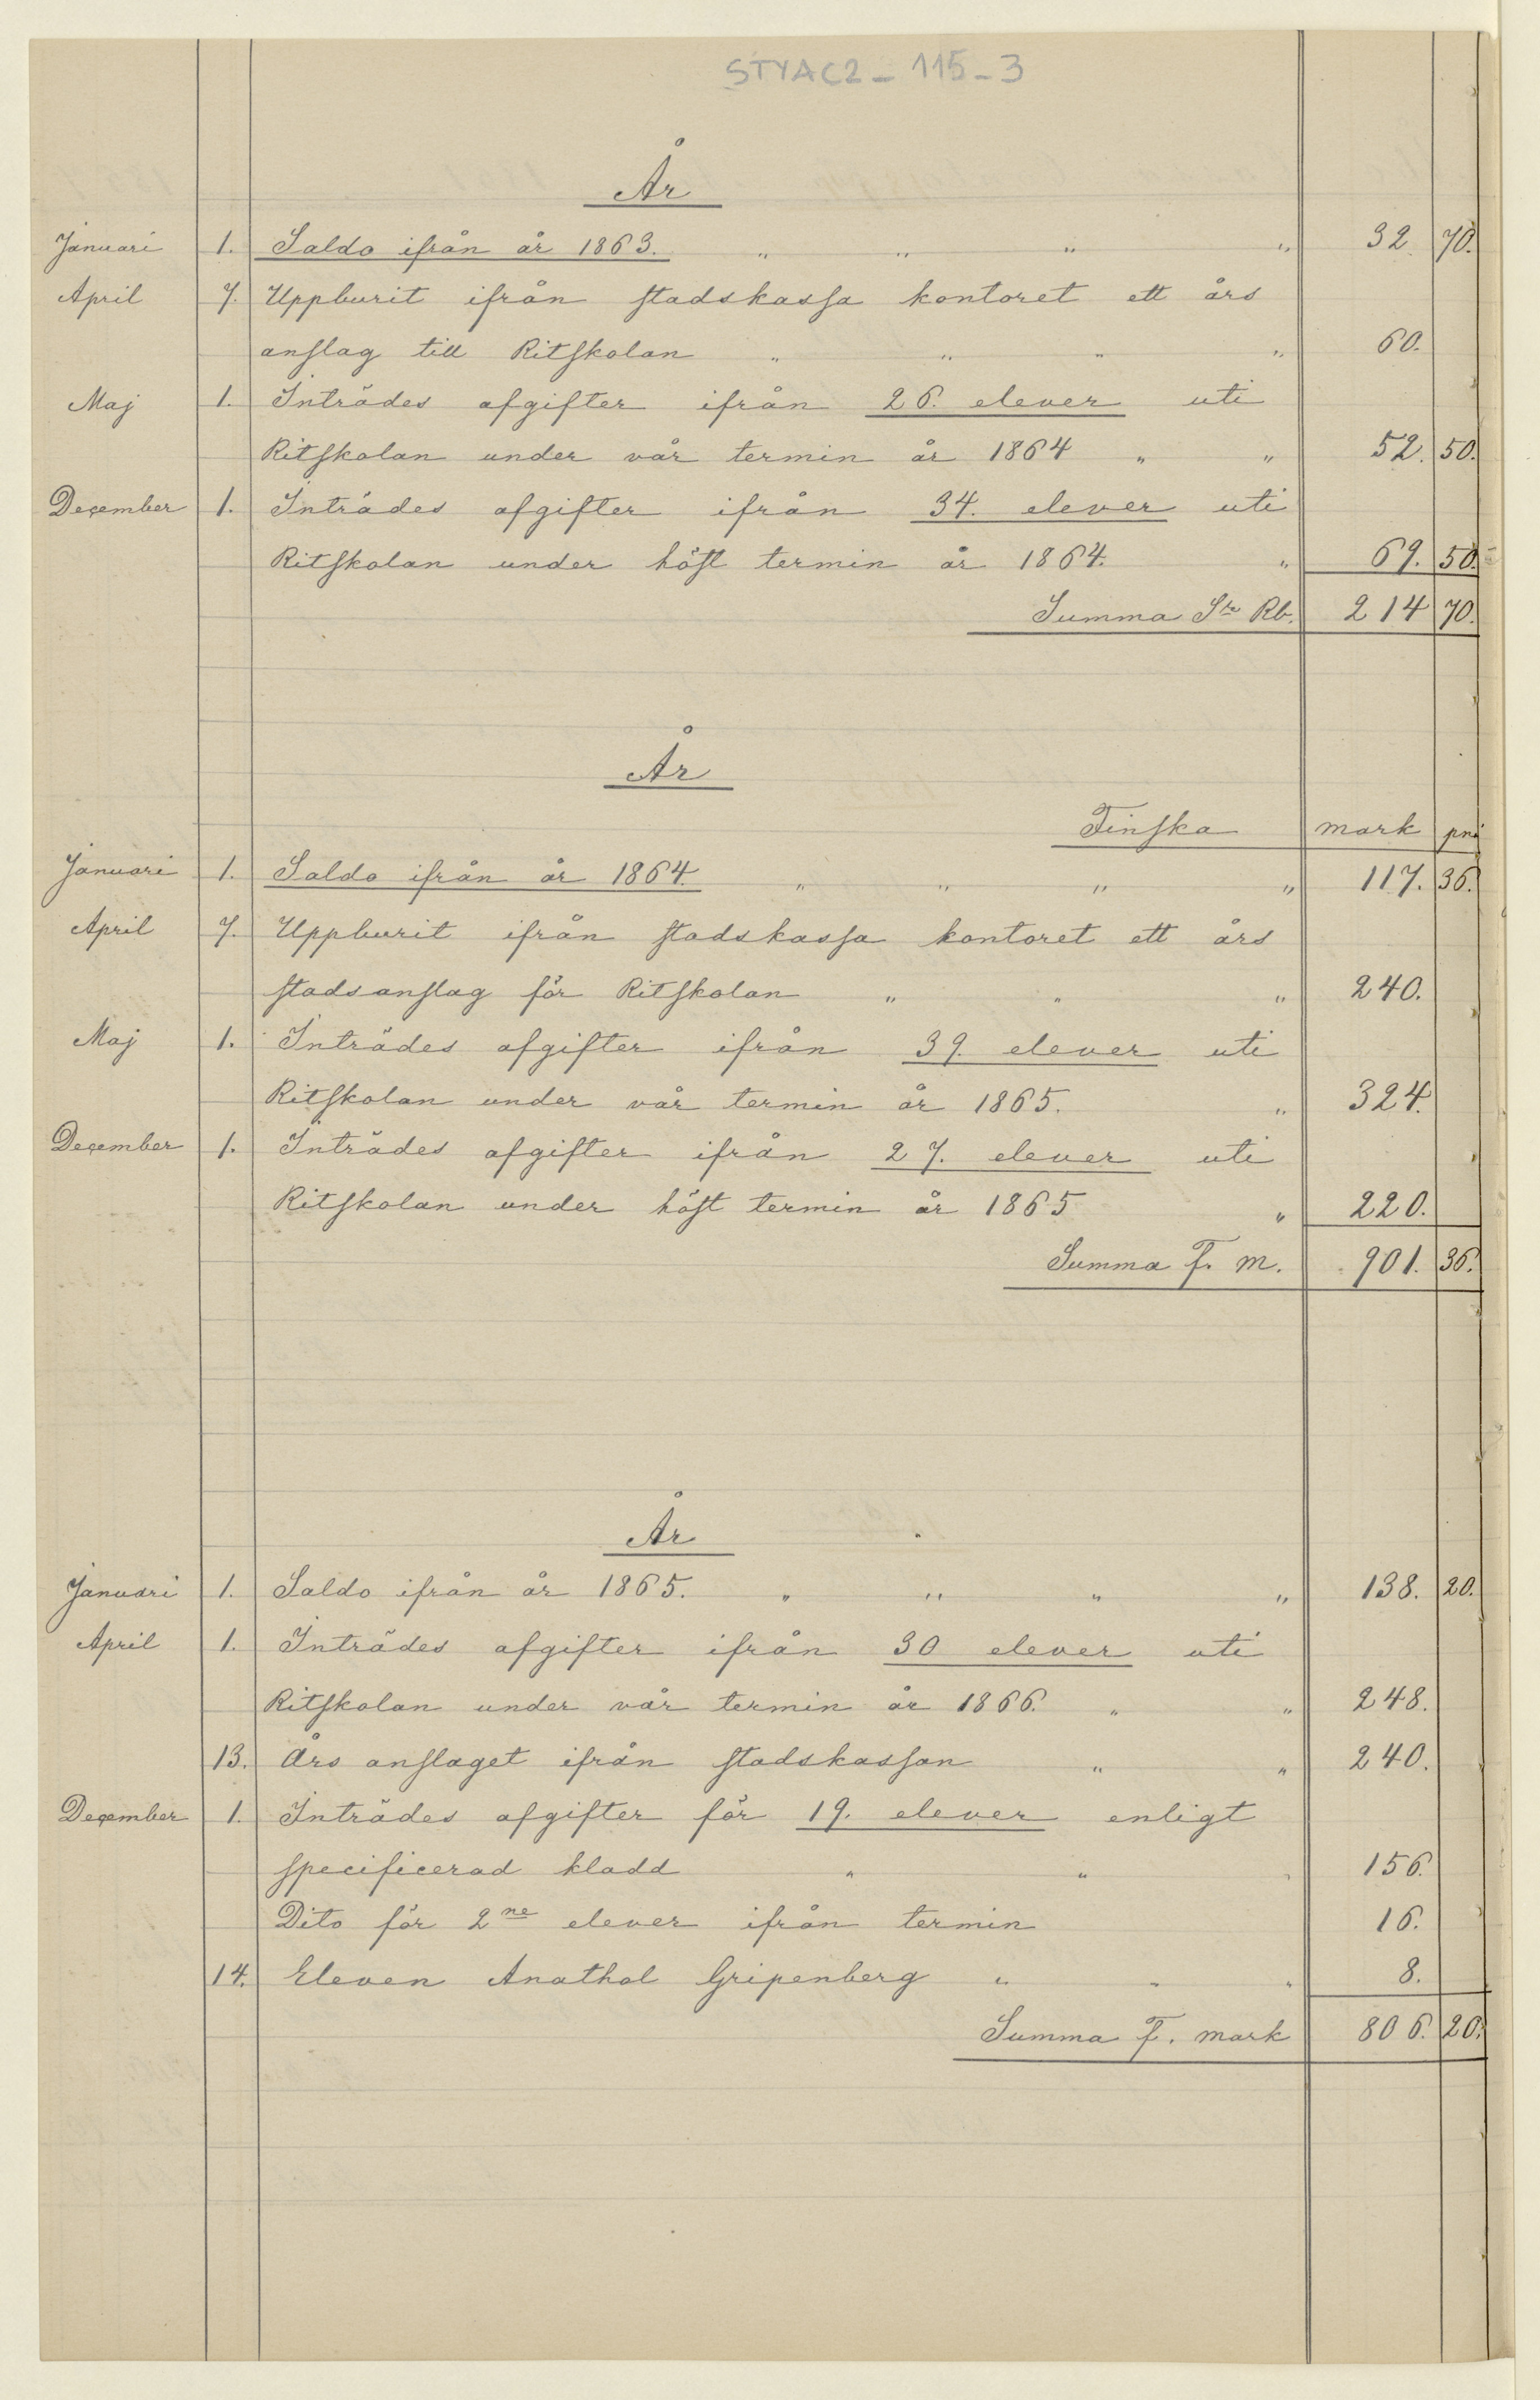 STYAC2 - 115 - 3
År
Januari 1. Saldo ifrån år 1863. " " " " 32. 70.
April 7. Uppburit ifrån stadskassa kontoret ett års
anslag till Ritskolan " " " " 60.
Maj 1. Inträdes afgifter ifrån 26. elever uti
Ritskolan under vår termin år 1864 " " 52. 50.
December 1. Inträdes afgifter ifrån 34. elever uti
Ritskolan under höst termin år 1864. " 69. 50.
Summa Sr Rb. 214 70.
År
Finska mark pni
Januari 1. Saldo ifrån år 1864. " " " " 117. 36.
April 7. Uppburit ifrån stadskassa kontoret ett års
stadsanslag för Ritskolan " " " 240.
Maj 1. Inträdes afgifter ifrån 39. elever uti
Ritskolan under vår termin år 1865. " 324.
December 1. Inträdes afgifter ifrån 27. elever uti
Ritskolan under höst termin år 1865 " 220.
Summa F. m. 901. 36.
År
Januari 1. Saldo ifrån år 1865. " " " " 138. 20.
April 1. Inträdes afgifter ifrån 30 elever uti
Ritskolan under vår termin år 1866. " " 248.
13. Års anslaget ifrån stadskassan " " 240.
December 1. Inträdes afgifter för 19. elever enligt
specificerad kladd " " " 156.
Dito för 2ne elever ifrån termin 16.
14. Eleven Anathol Gripenberg " " " 8.
Summa F. mark 806. 20.